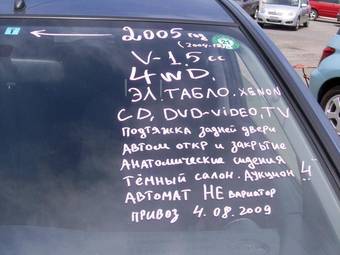 2005 год
V-1.5 cc
4WD.
ЭЛ.ТАБЛО.XENON
CD, DVD-VIDEO, TV
ПОДТЯЖКА ЗАДНЕЙ ДВЕРИ
АВТОМ ОТКР И ЗАКРЫТИЕ
АНАТОМИЧЕСКИЕ СИДЕНИЯ
ТЁМНЫЙ САЛОН. АУКЦИОН 4
АВТОМАТ НЕ ВАРИАТОР
ПРИВОЗ 4.08.2009